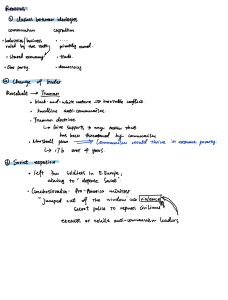 Reasons
① clashes between ideologies
communism capitalism
· industries/business · ....
ruled by the state privately owned.
· shared economy · trade.
· One party. · democracy
② Change of leader
Roosevelt → Truman
· black-and-white → inevitable conflicts
· hardline anti-communism.
· Truman doctrine
↳ Give supports to any nation that
has been threatened by communism
· Marshall plan ⇒ Communism could thrive in extreme poverty.
↳ 17b over 4 years.
③ Soviet expansion
· left troops soldiers in E. Europe,
aiming to "defense Soviet"
· Czechoslovakia: Pro-America minister
"jumped out of the window" → violence
secret police to repress civilians
execute or exile anti-communism leaders